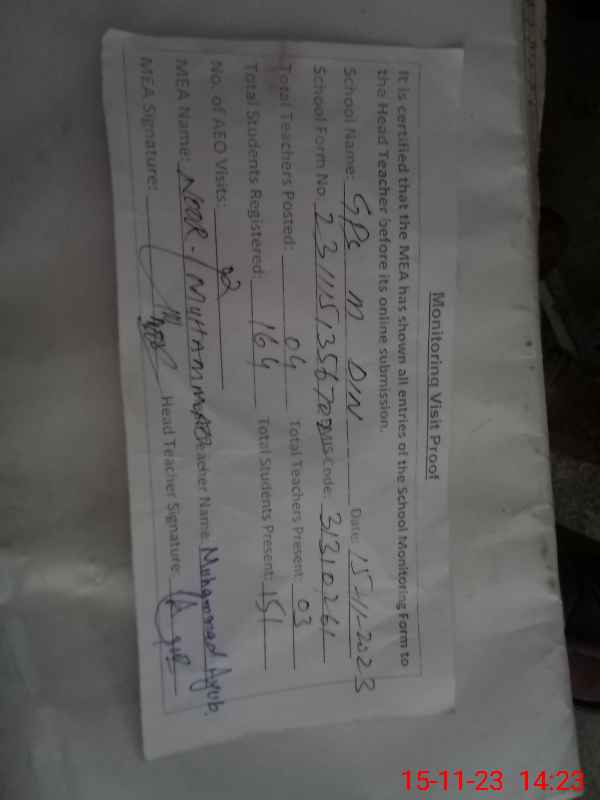 Monitoring Visit Proof
It is certified that the MEA has shown all entries of the School Monitoring Form to
the Head Teacher before its online submission.
School Name: GPS M DIN Date: 15-11-2023
School Form No. EMIS Code: 31310261
Total Teachers Posted: 04 Total Teachers Present: 03
Total Students Registered: 164 Total Students Present: 151
No. of AEO Visits: 02
MEA Name: NOOR-MUHAMMAD Teacher Name: Muhammad Ayub.
MEA Signature: Head Teacher Signature: Ayub
15-11-23 14:23